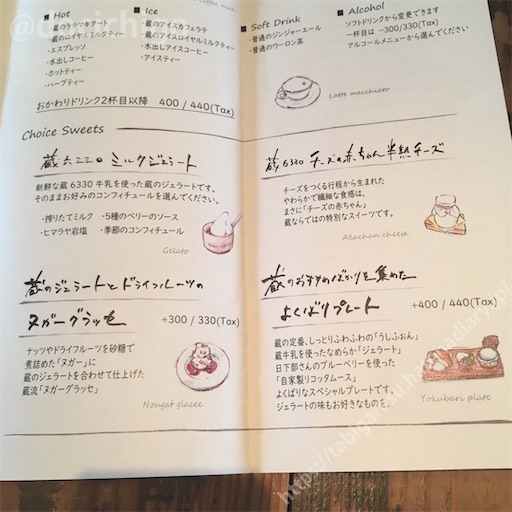 Hot
・蔵のラテマキアート
・蔵のロイヤルミルクティー
・エスプレッソ
・水出しコーヒー
・ホットティー
・ハーブティー
Ice
・蔵のアイスカフェラテ
・蔵のアイスロイヤルミルクティー
・水出しアイスコーヒー
・アイスティー
おかわりドリンク2杯目以降 400 / 440(Tax)
Soft Drink
・普通のジンジャーエール
・普通のウーロン茶
Alcohol
ソフトドリンクから変更できます
一杯目は -300/330(Tax)
アルコールメニューから選んでください
Latte macchiato
Choice Sweets
蔵六三三〇ミルクジェラート
新鮮な蔵6330牛乳を使った蔵のジェラートです。
そのままお好みのコンフィチュールを選んでください。
・搾りたてミルク ・5種のベリーのソース
・ヒマラヤ岩塩 ・季節のコンフィチュール
Gelato
蔵のジェラートとドライフルーツの
ヌガーグラッセ +300 / 330(Tax)
ナッツやドライフルーツを砂糖で
煮詰めた「ヌガー」に
蔵のジェラートを合わせて仕上げた
蔵流「ヌガーグラッセ」
Nougat glacee
蔵6330 チーズの赤ちゃん半熟チーズ
チーズをつくる行程から生まれた
やわらかで繊細な食感は、
まさに「チーズの赤ちゃん」
蔵ならではの特別なスイーツです。
Akachan cheese
蔵のおすすめばかりを集めた
よくばりプレート +400 / 440(Tax)
蔵の定番、しっとりふわふわの「うしふぉん」
蔵牛乳を使ったなめらか「ジェラート」
日下部さんのブルーベリーを使った
「自家製リコッタムース」
よくばりなスペシャルプレートです。
ジェラートの味もお好きなものを。
Yokubari plate